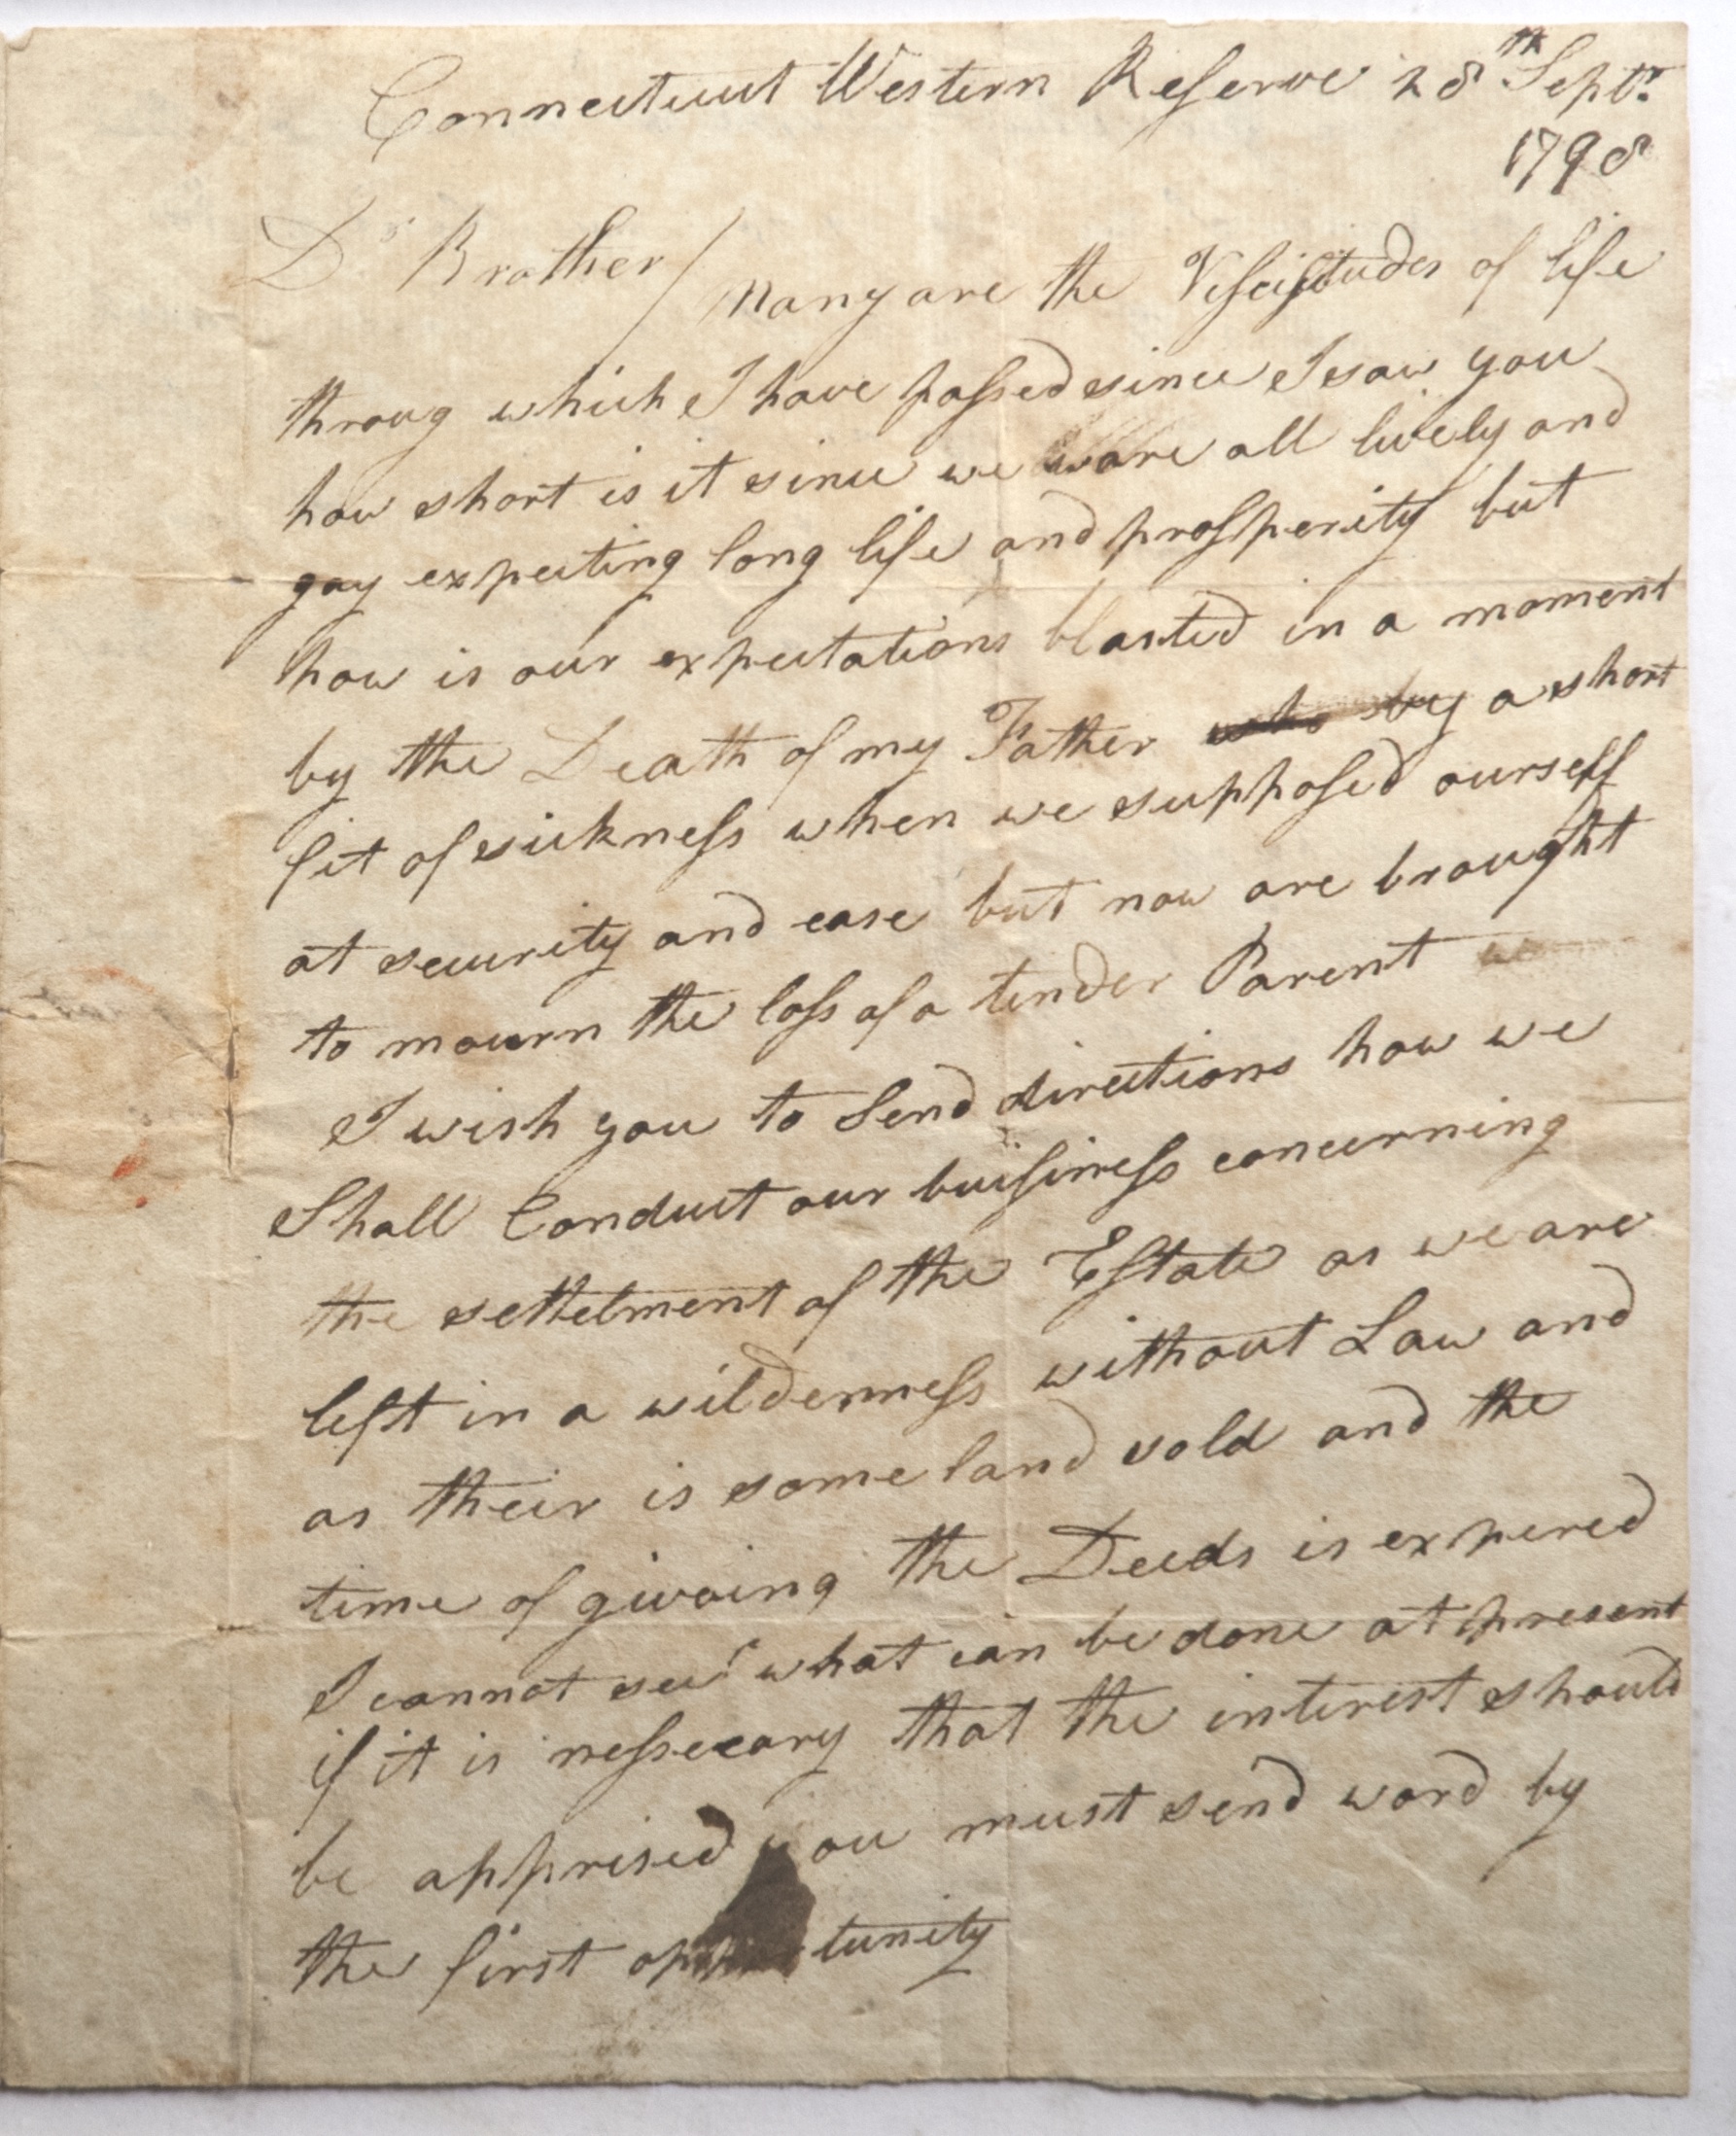 Connecticut Western Reserve 28th Septr.
1798
Dr Brother / Many are the Viscisitudes of life
throug which I have passed since I saw you
how short is it since we ware all lively and
gay expecting long life and prosperity but
how is our expectations blasted in a moment
by the Death of my Father who by a short
fit of sickness when we supposed ourself
at security and ease but now are brought
to mourn the loss of a tender Parent
I wish you to Send directions how we
Shall Conduct our buisiness concerning
the settelment of the Estate as we are
left in a wilderness without Law and
as their is some land sold and the
time of givving the Deeds is expered
I cannot see what can be done at present
if it is nessecary that the interest should
be apprised you must send word by
the first opportunity